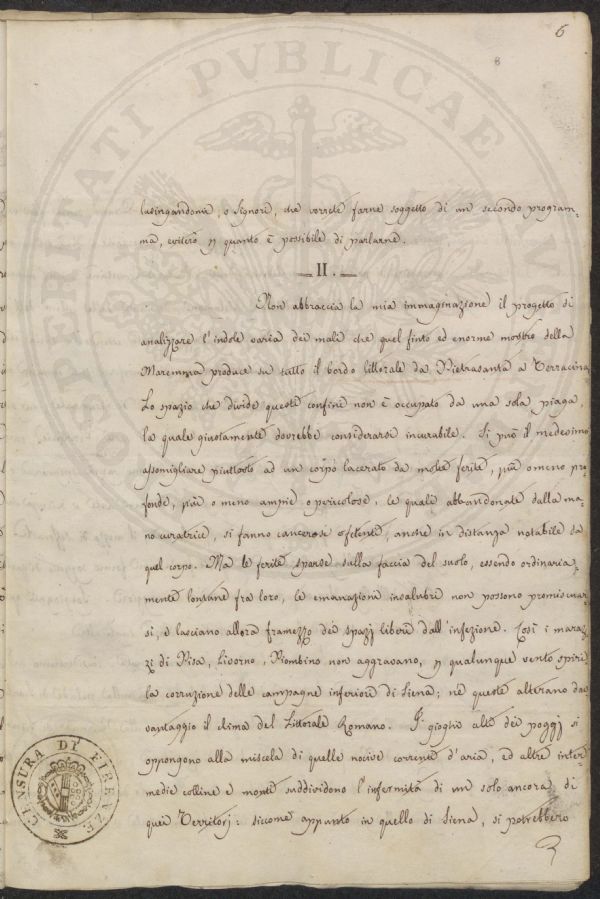 6
8
lusingandomi, o Signori, che vorrete farne soggetto di un secondo program=
ma, eviterò p quanto è possibile di parlarne.
II.
Non abbraccia la mia immaginazione il progetto di
analizzare l'indole varia dei mali che quel finto ed enorme mostro della
Maremma produce su tutto il bordo littorale da Pietrasanta a Terracina
Lo spazio che divide questi confini non è occupato da una sola piaga,
la quale giustamente dovrebbe considerarsi incurabile. Si può il medesimo
assomigliare piuttosto ad un corpo lacerato da molte ferite, più o meno pro=
fonde, più o meno ampie o pericolose, le quali abbandonate dalla ma=
no curatrice, si fanno cancerose e fetenti, anche in distanza notabile da
quel corpo. Ma le ferite sparse sulla faccia del suolo, essendo ordinaria=
mente lontane fra loro, le emanazioni insalubri non possono promiscuar=
si, e lasciano allora framezzo dei spazj liberi dall'infezione. Così i maraz=
zi di Pisa, Livorno, Piombino non aggravano, p qualunque vento spiri
la corruzione delle campagne inferiori di Siena; nè queste alterano da
vantaggio il clima del Littorale Romano. I gioghi alti dei poggj si
oppongono alla miscela di quelle nocive correnti d'aria, ed altre inter=
medie colline e monti suddividono l'infermità di un solo ancora di
quei Territorj: siccome appunto in quello di Siena, si potrebbero
PERITATI PVBLICAE
CENSURA DI FIRENZE